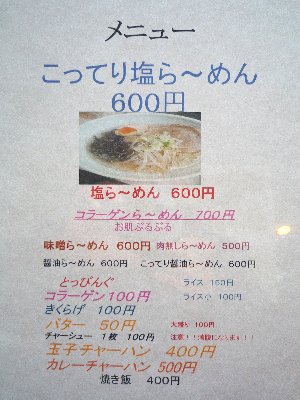 メニュー
こってり塩ら～めん
600円
塩ら～めん 600円
コラーゲンら～めん 700円
お肌ぷるぷる
味噌ら～めん 600円 肉無しら～めん 500円
醤油ら～めん 600円 こってり醤油ら～めん 600円
とっぴんぐ ライス 150円
コラーゲン100円 ライス小 100円
きくらげ 100円
バター 50円 大盛り 100円
チャーシュー 1枚 100円 注意！！満腹になります！！
玉子チャーハン 400円
カレーチャーハン 500円
焼き飯 400円